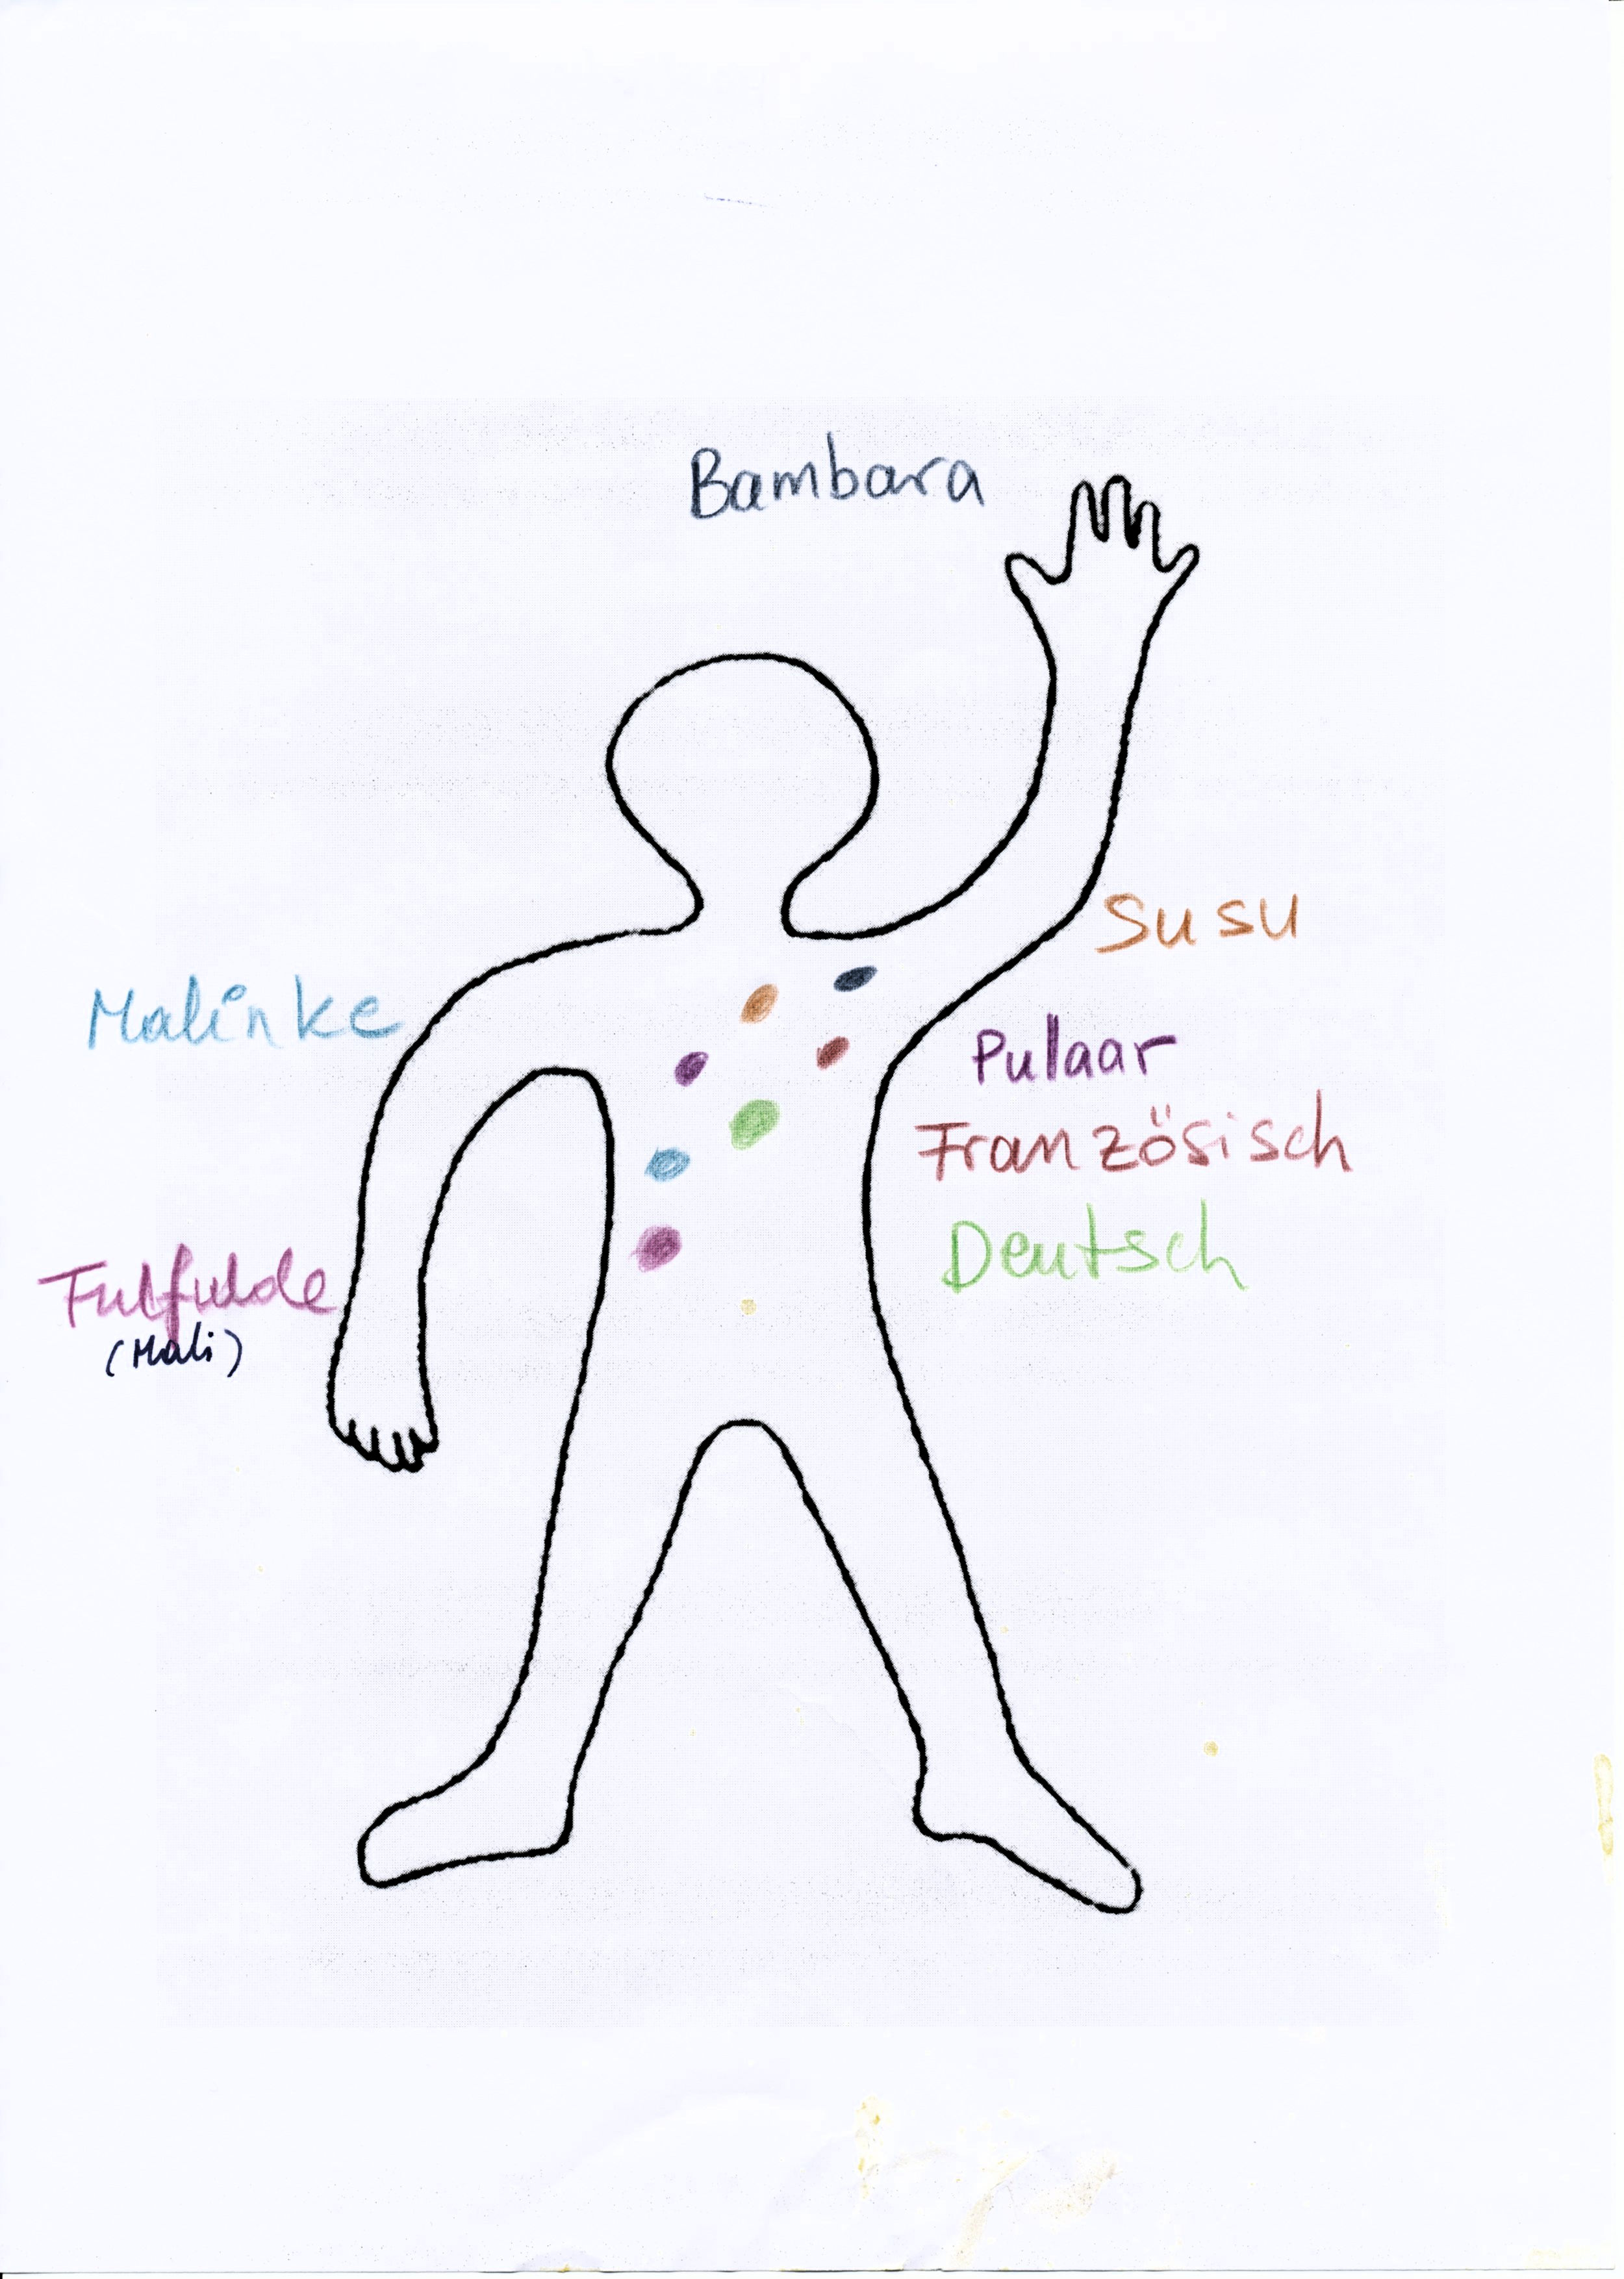 Bambara
Susu
Malinke
Pulaar
Französisch
Deutsch
Fulfulde
(Mali)